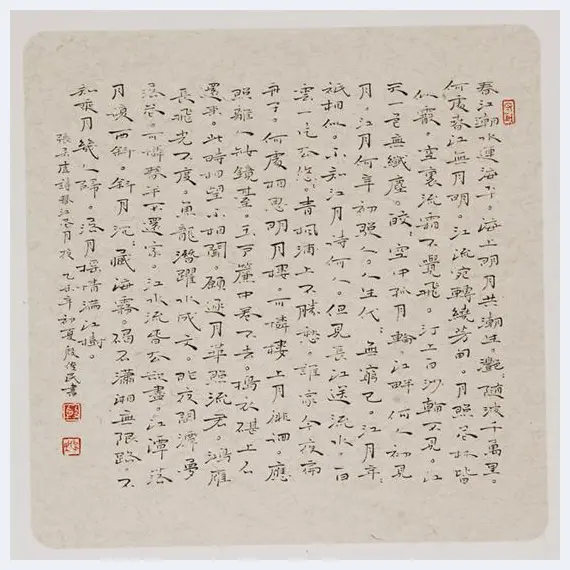 春江潮水連海平。海上明月共潮生。灩隨波千萬里。
何處春江無月明。江流宛轉繞芳甸。月照花林皆
似霰。空裏流霜不覺飛。汀上白沙看不見。江
天一色無纖塵。皎:空中孤月輪。江畔何人初見
月。江月何年初照人。人生代:無窮已。江月年:
祇相似。不知江月待何人。但見長江送流水。白
雲一片去悠:。青楓浦上不勝愁。誰家今夜扁
舟子。何處相思明月樓。可憐樓上月徘徊。應
照離人妝鏡臺。玉戶簾中卷不去。搗衣砧上拂
還來。此時相望不相聞。願逐月華照流君。鴻雁
長飛光不度。魚龍潛躍水成文。昨夜閑潭夢
落花。可憐春半不還家。江水流春去欲盡。江潭落
月復西斜。斜月沉:藏海霧。碣石瀟湘無限路。不
知乘月幾人歸。落月搖情滿江樹。
張若虛詩春江花月夜 乙未年初夏殷俊民書